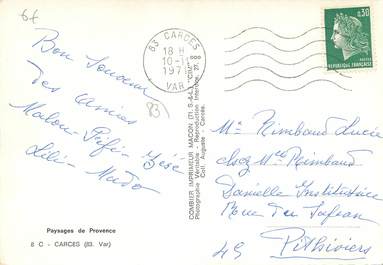 6f
83 CARCES
18 H
10-1
197
VAR
0,30
REPUBLIQUE FRANÇAISE
POSTES
Bon Souvenir
des amies
Malou - Fifi - Zézé
Lili - Mado
83
COMBIER IMPRIMEUR MACON (71 S.-&-L.) "CIM"
Photographie Véritable - Reproduction Interdite
Coll. Auguste - Carcès.
Me Rimbaud Lucie
chez Mlle Rimbaud
Danielle Institutrice
Rue du Safran
45 Pithiviers
Paysages de Provence
8 C - CARCES (83. Var)